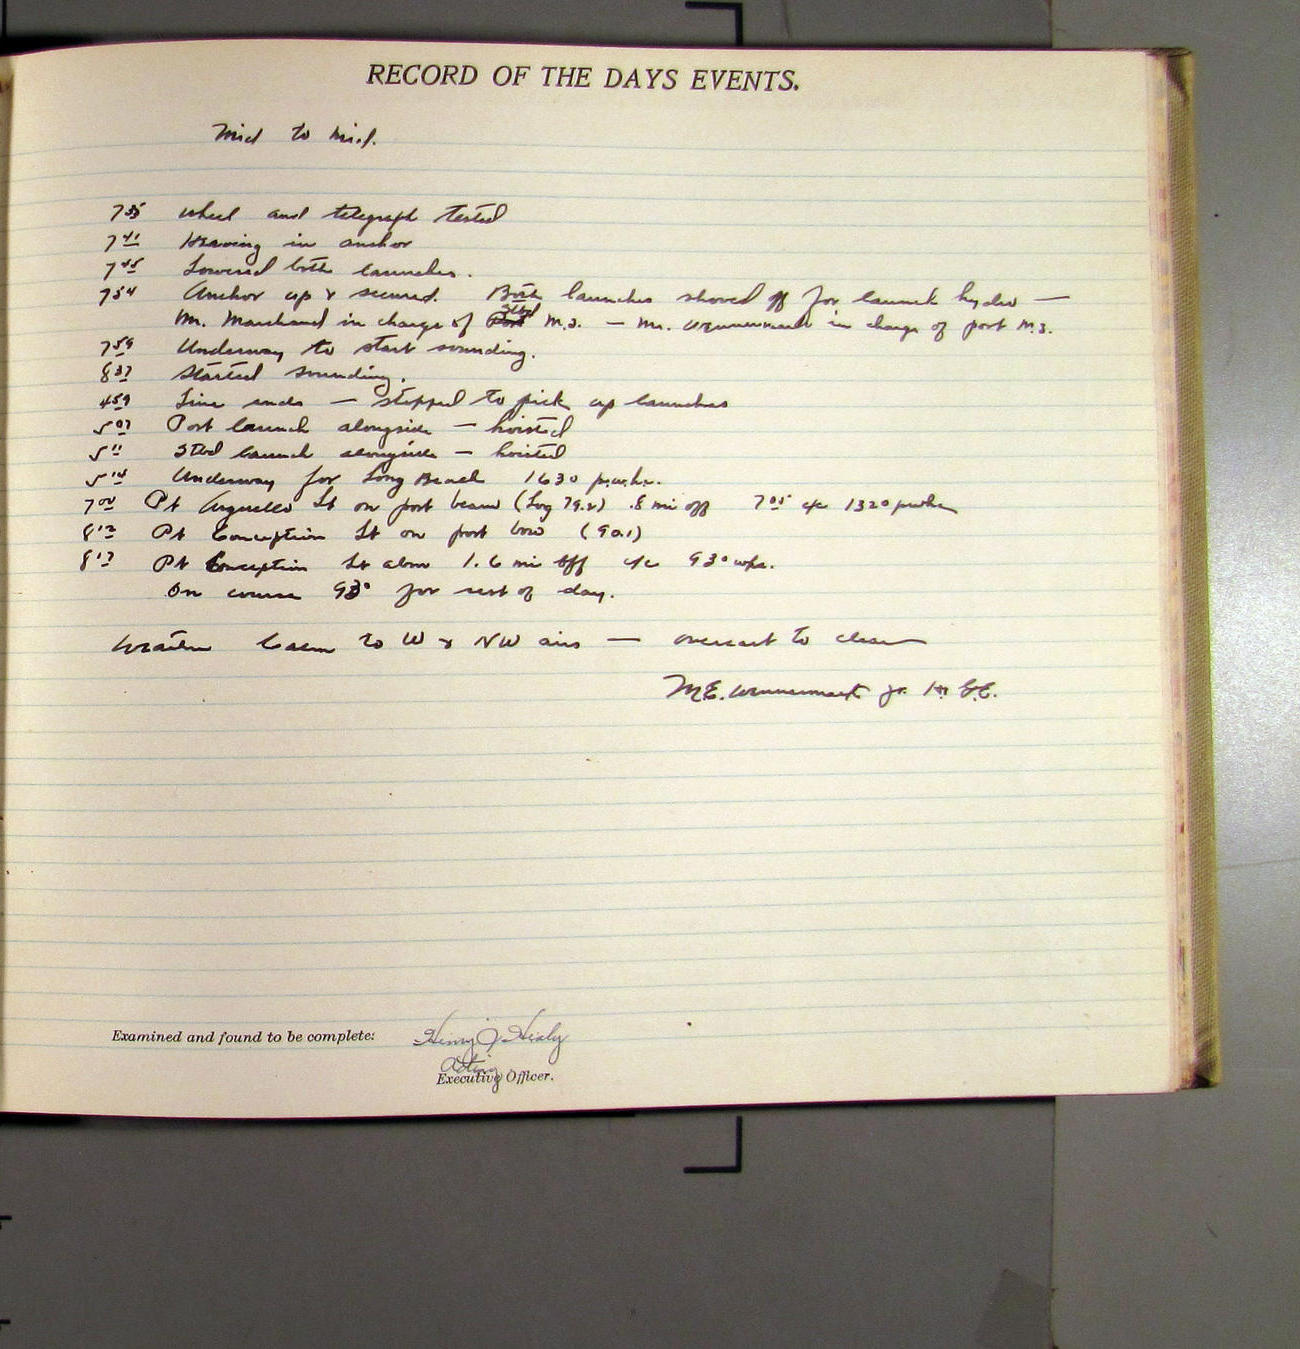 RECORD OF THE DAYS EVENTS.
Mid to Mid.
7 35 Wheel and telegraph tested
7 41 Heaving in anchor
7 45 Lowered both launches.
7 54 Anchor up & secured. Both launches shoved off for launch hydro —
Mr. Marchand in charge of Port Stbd M.S. — Mr. Wennermark in charge of port M.S.
7 59 Underway to start sounding.
8 37 Started sounding.
4 59 Line ends — stopped to pick up launches
5 07 Port launch alongside — hoisted
5 11 Stbd launch alongside — hoisted
5 14 Underway for Long Beach 163° p.w.h.c.
7 00 Pt Arguello Lt on port beam (Log 79.2) .8 mi off 7 05 c/c 132° pwhc
8 12 Pt Conception Lt on port bow (90.1)
8 17 Pt Conception Lt abm 1.6 mi off c/c 93° whc.
On course 93° for rest of day.
Weather Calm to W & NW airs — overcast to clear
M.E. Wennermark Jr. H. & G.E.
Examined and found to be complete: Henry J. Healy
Acting
Executive Officer.